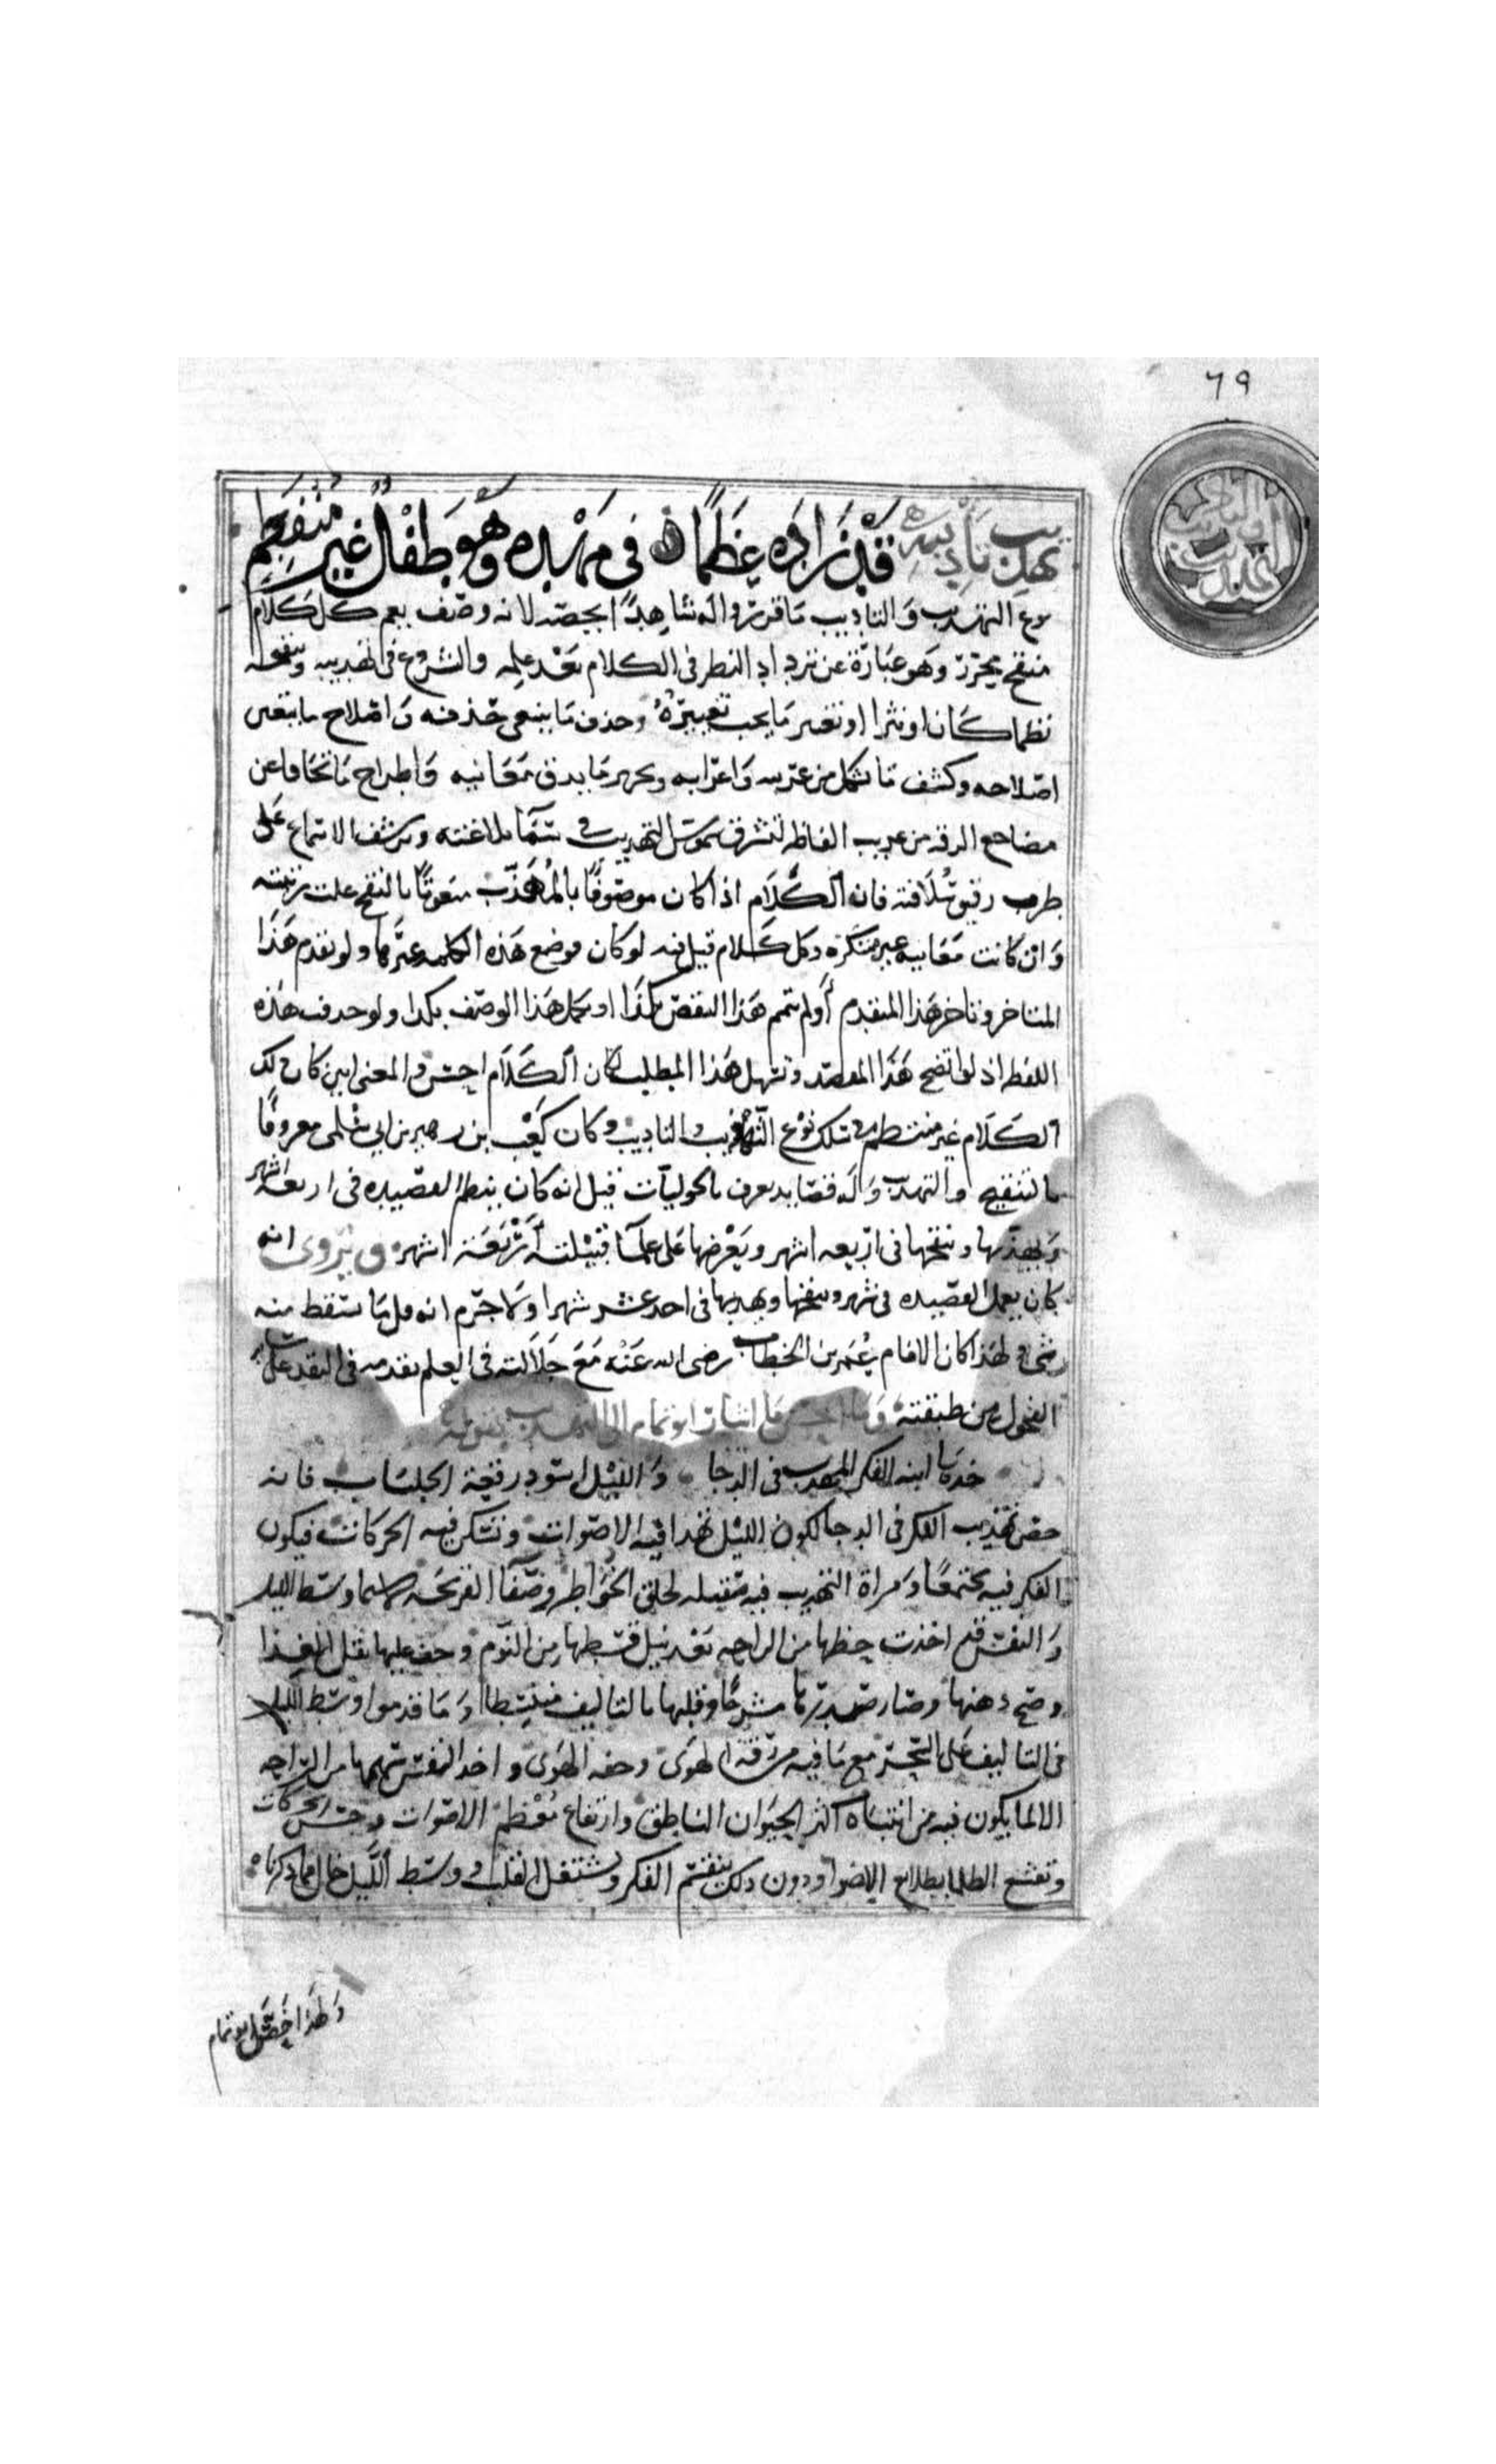 ٦٩
التهذيب والتأديب
تهذيب تأديبه قد زاده عظما في مهده وهو طفل غير منفطم
نوع التهذيب والتاديب ما قرروا له شاهدا يخصه لانه وصف يعم كل كلام
منقح محرر وهو عبارة عن ترداد النظر في الكلام بعد عمله والشروع في تهذيبه وتنقيحه
نظما كان او نثرا او تغيير ما يجب تغييره وحذف ما ينبغي حذفه واصلاح ما يتعين
اصلاحه وكشف ما يشكل من غريبه واعرابه وتحرير ما يدق من معانيه واطراح ما تجافا عن
مضاجع الرقه من غريب الفاظه لتشرق شموس التهذيب في سما بلاغته وترشف الاسماع على
طرب رقيق سلافته فان الكلام اذا كان موصوفا بالمهذب منعوتا بالمنقح علت رتبته
وان كانت معانيه غير مبتكره وكل كلام قيل فيه لو كان موضع هذه الكلمه غيرها ولو تقدم هذا
المتاخر وتاخر هذا المتقدم او لو تمم هذا النقص بكذا او تكمل هذا الوصف بكذا ولو حذفت هذه
اللفظه اذ لو اتضح هذا المقصد وتسهل هذا المطلب لكان الكلام احسن والمعنى ابين كان ذلك
الكلام غير منتظم في سلك نوع التهذيب والتاديب وكان كعب ابن زهير بن ابي سلمى معروفا
بالتنقيح والتهذيب وله قصايد تعرف بالحوليات قيل انه كان ينظم القصيده في اربعه اشهر
ويهذبها وينقحها في اربعه اشهر ويعرضها على علما قبيلته اربعة اشهر ويروى انه
كان يعمل القصيده في شهر وينقحها ويهذبها في احد عشر شهرا ولا جرم انه قل ما سقط منه
شي ولهذا كان الامام عمر بن الخطاب رضى الله عنه مع جلالته في العلم يقدمه في النقد على ساير
الفحول من طبقته وما احسن ما اشار ابو تمام الى التهذيب بقوله
خذها ابنه الفكر المهذب في الدجا والليل اسود رقعة الجلباب فانه
خص تهذيب الفكر في الدجا لكون الليل تهدا فيه الاصوات وتسكن فيه الحركات فيكون
الفكر فيه مجتمعا ومراة التهذيب فيه صقيله لخلو الخواطر وصفا القريحه لا سيما وسط الليل
والنفس قد اخذت حظها من الراحه بعد نيل قسطها من النوم وخف عليها ثقل الغذا
وصح ذهنها وصار صدرها منشرحا وقلبها بالتاليف منبسطا وما قدموا وسط الليل
في التاليف على السحر مع ما فيه من رقة الهوى وخفه الهوى واخذ النفس سهمها من الراحه
الا لما يكون فيه من انتباه اكثر الحيوان الناطق وارتفاع معظم الاصوات وجرس الحركات
وتقشع الظلما بطلايع الاضوا ودون ذلك ينقسم الفكر ويشتغل القلب ووسط الليل خال مما ذكرناه
ولهذا خص ابو تمام